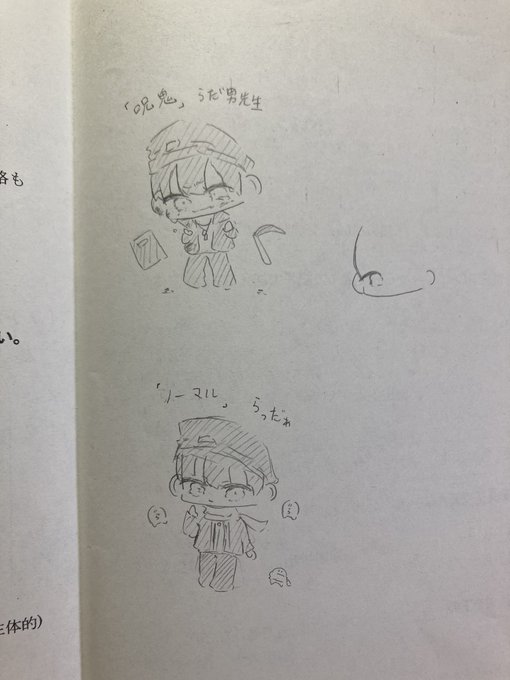 「呪鬼」らだ男先生
「ノーマル」らっだぁ
格も
い。
主体的)